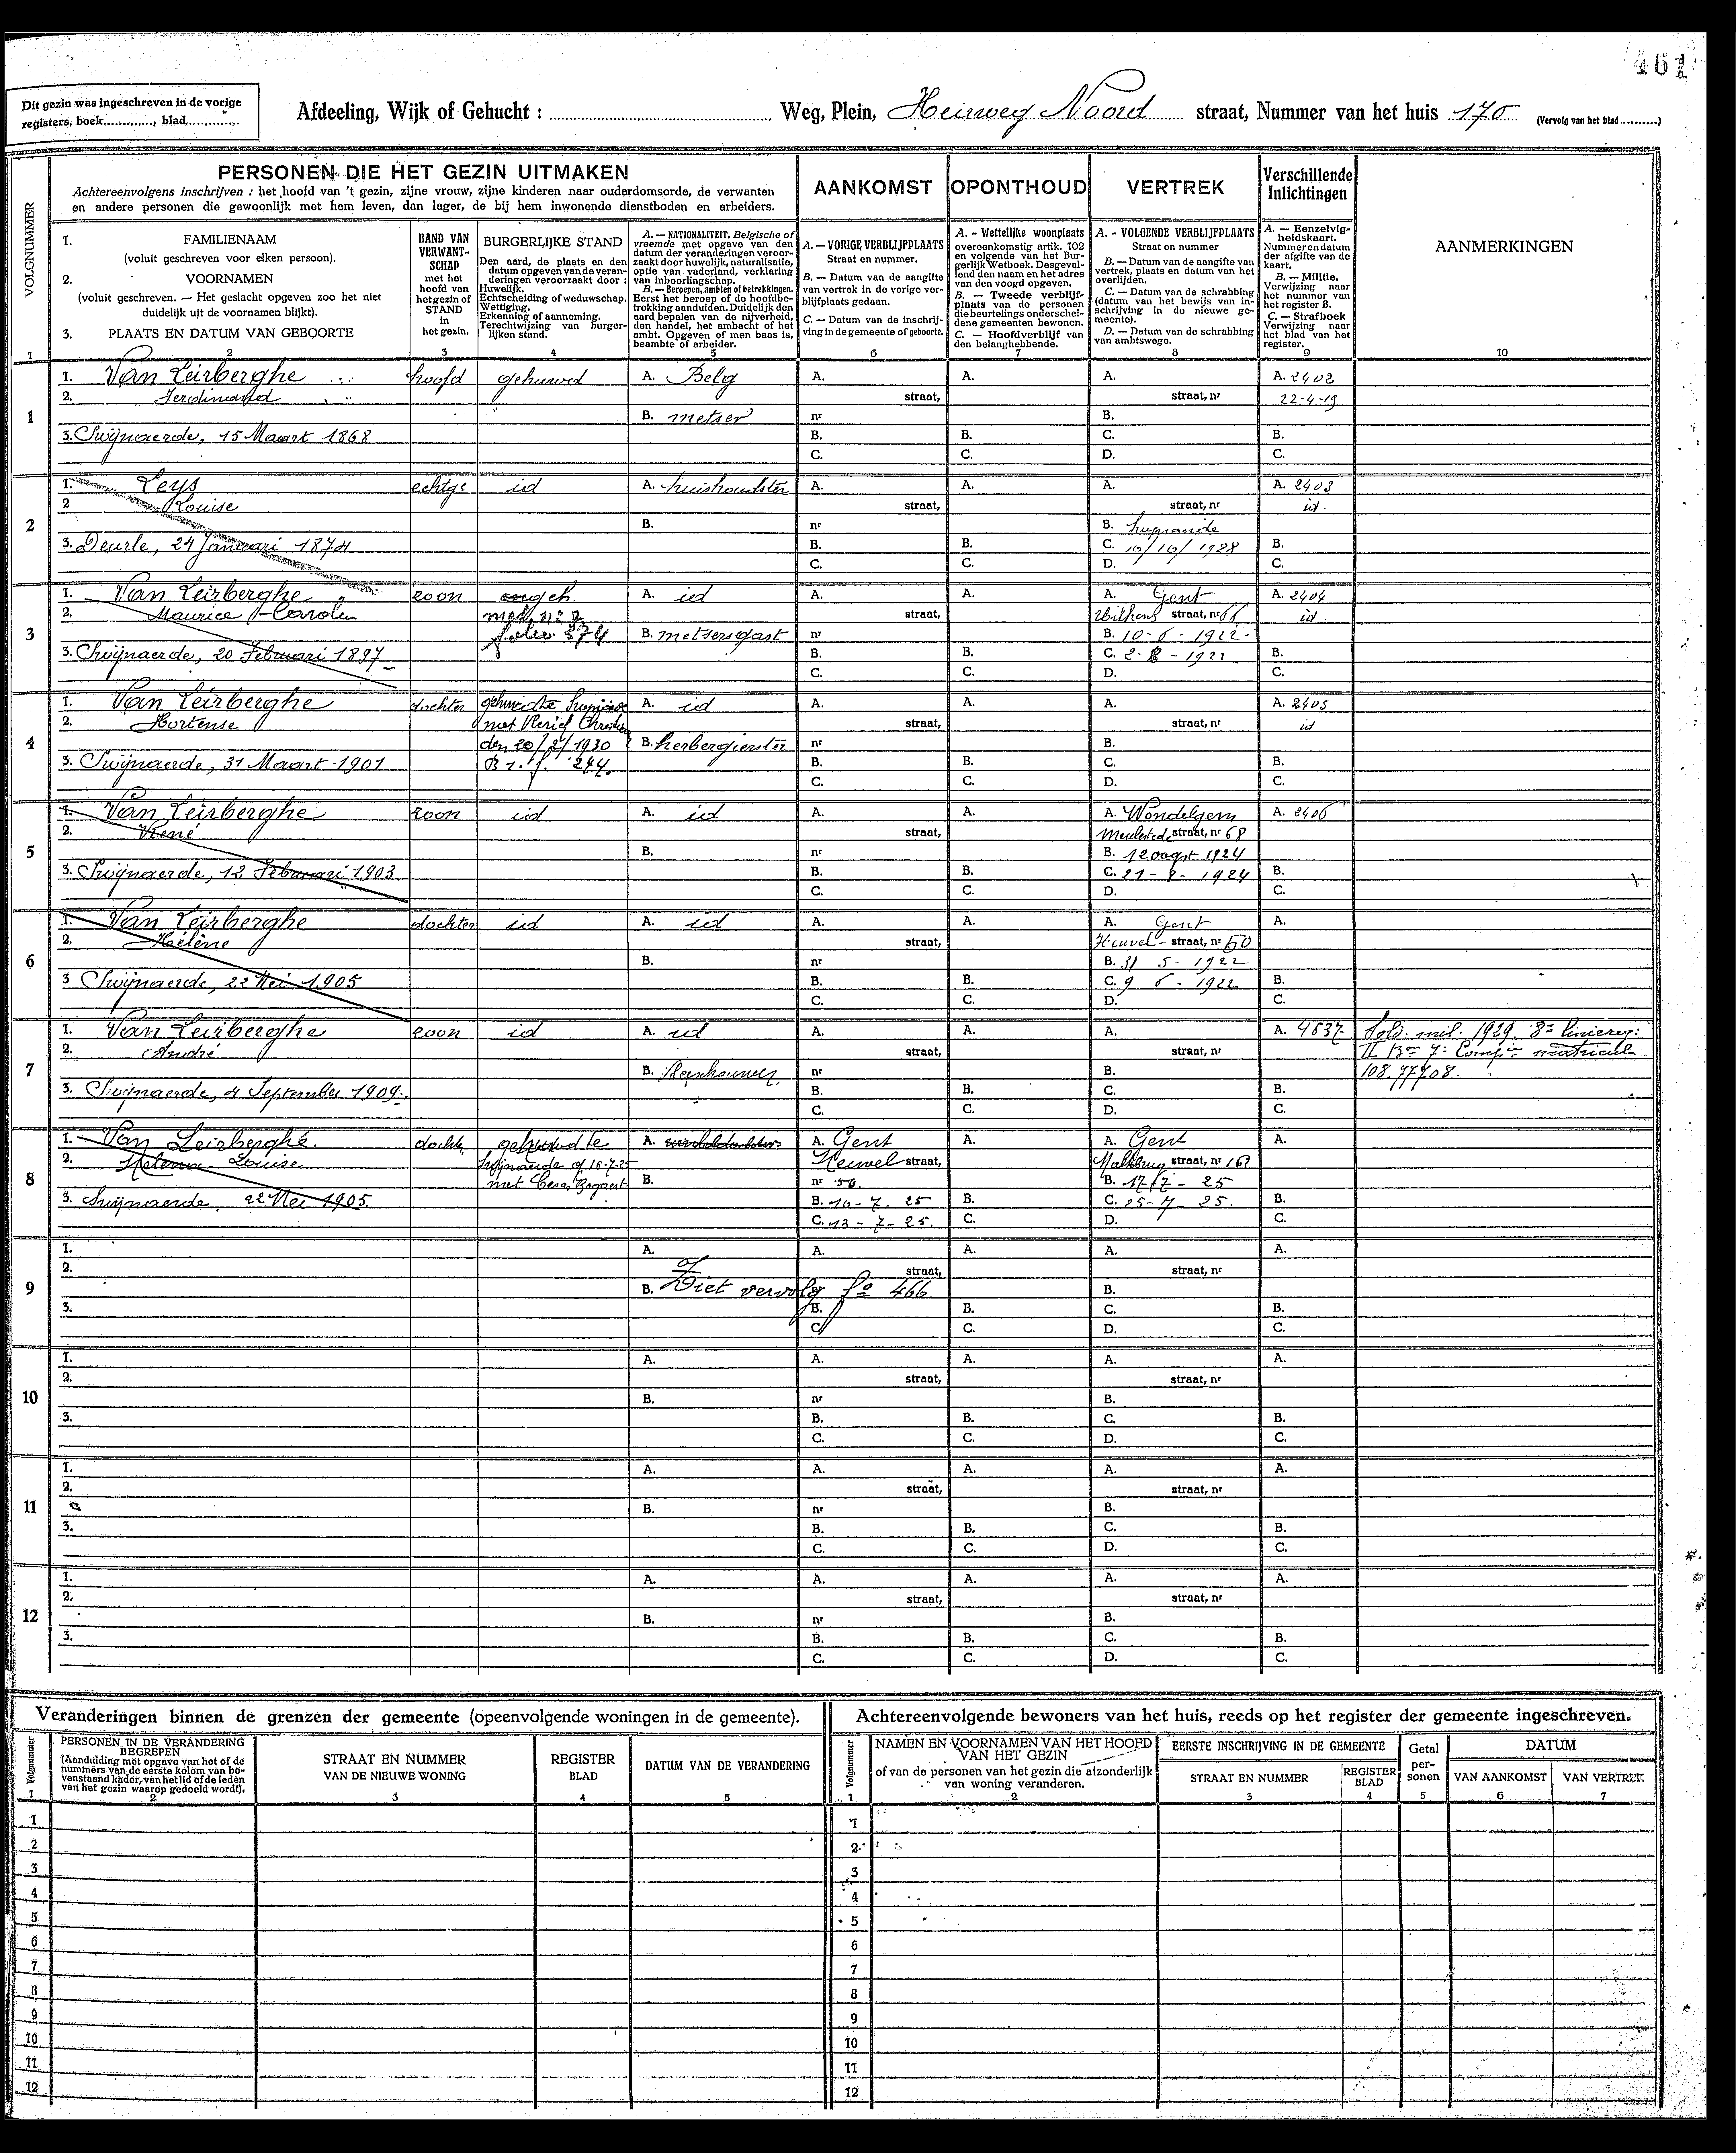 461
Dit gezin was ingeschreven in de vorige
registers, boek............, blad.............
Afdeeling, Wijk of Gehucht : .................... Weg, Plein, Heirweg Noord straat, Nummer van het huis 170 (Vervolg van het blad ..........)
VOLGNUMMER
PERSONEN DIE HET GEZIN UITMAKEN
Achtereenvolgens inschrijven : het hoofd van 't gezin, zijne vrouw, zijne kinderen naar ouderdomsorde, de verwanten
en andere personen die gewoonlijk met hem leven, dan lager, de bij hem inwonende dienstboden en arbeiders.
AANKOMST
OPONTHOUD
VERTREK
Verschillende
Inlichtingen
1. FAMILIENAAM
(voluit geschreven voor elken persoon).
2. VOORNAMEN
(voluit geschreven. — Het geslacht opgeven zoo het niet
duidelijk uit de voornamen blijkt).
3. PLAATS EN DATUM VAN GEBOORTE
BAND VAN
VERWANT-
SCHAP
met het
hoofd van
het gezin of
STAND
in
het gezin.
BURGERLIJKE STAND
Den aard, de plaats en den
datum opgeven van de veran-
deringen veroorzaakt door :
Huwelijk.
Echtscheiding of weduwschap.
Wettiging.
Erkenning of aanneming.
Terechtwijzing van burger-
lijken stand.
A. — NATIONALITEIT, Belgische of
vreemde met opgave van den
datum der veranderingen veroor-
zaakt door huwelijk, naturalisatie,
optie van vaderland, verklaring
van inboorlingschap.
B. — Beroepen, ambten of betrekkingen.
Eerst het beroep of de hoofdbe-
trekking aanduiden. Duidelijk den
aard bepalen van de nijverheid,
den handel, het ambacht of het
ambt. Opgeven of men baas is,
beambte of arbeider.
A. — VORIGE VERBLIJFPLAATS
Straat en nummer.
B. — Datum van de aangifte
van vertrek in de vorige ver-
blijfplaats gedaan.
C. — Datum van de inschrij-
ving in de gemeente of geboorte.
A. - Wettelijke woonplaats
overeenkomstig artik. 102
en volgende van het Bur-
gerlijk Wetboek. Desgeval-
lend den naam en het adres
van den voogd opgeven.
B. — Tweede verblijf-
plaats van de personen
die beurtelings onderschei-
dene gemeenten bewonen.
C. — Hoofdverblijf van
den belanghebbende.
A. - VOLGENDE VERBLIJFPLAATS
Straat en nummer
B. — Datum van de aangifte van
vertrek, plaats en datum van het
overlijden.
C. — Datum van de schrabbing
(datum van het bewijs van in-
schrijving in de nieuwe ge-
meente).
D. — Datum van de schrabbing
van ambtswege.
A. — Eenzelvig-
heidskaart.
Nummer en datum
der afgifte van de
kaart.
B. — Militie.
Verwijzing naar
het nummer van
het register B.
C. — Strafboek
Verwijzing naar
het blad van het
register.
AANMERKINGEN
1 2 3 4 5 6 7 8 9 10
1
1. Van Leirberghe hoofd gehuwd A. Belg A. A. A. A. 2402
2. Ferdinand straat, straat, nr 22-4-19
B. metser nr B.
3. Swijnaerde, 15 Maart 1868 B. B. C. B.
C. C. D. C.
2
1. Leys echtge id A. huishoudster A. A. A. A. 2403
2 Louise straat, straat, nr id.
B. nr B.
3. Deurle, 24 Januari 1874 B. B. C. 10/10/1928 B.
C. C. D. C.
3
1. Van Leirberghe zoon ongeh. A. id A. A. A. Gent A. 2404
2. Maurice straat, straat, nr 66 id.
folio 374 B. metsersgast nr B. 10-6-1922.
3. Swijnaerde, 20 Februari 1897 B. B. C. 1922 B.
C. C. D. C.
4
1. Van Leirberghe dochter A. id A. A. A. A. 2405
2. Hortense met straat, straat, nr id
den 20/2/1930 B. herbergierster nr B.
3. Swijnaerde, 31 Maart 1901 244. B. B. C. B.
C. C. D. C.
5
1. Van Leirberghe zoon id A. id A. A. A. Wondelgem A. 2406
2. René straat, Meulestede straat, nr 68
B. nr B. 12 oogst 1924
3. Swijnaerde, 12 Februari 1903. B. B. C. 21-8-1924 B.
C. C. D. C.
6
1. Van Leirberghe dochter id A. id A. A. A. Gent A.
2. Hélène straat, Heuvel straat, nr 50
B. nr B. 31 5-1922
3 Swijnaerde, 22 Mei 1905 B. B. C. 9 6-1922 B.
C. C. D. C.
7
1. Van Leirberghe zoon id A. id A. A. A. A. 4637 Sold. mil. 1929.
2. André straat, straat, nr
B. nr B. 108.77708.
3. Swijnaerde, 4 September 1909. B. B. C. B.
C. C. D. C.
8
1. Van Leirberghe. A. A. Gent A. A. Gent A.
2. Helena Louise Heuvel straat, straat, nr 162
met B. nr 50. B. 17/7-25
3. Swijnaerde, 22 Mei 1905. B. 10-7-25 B. C. 25-7-25. B.
C. 13-7-25. C. D. C.
9
1. A. A. A. A. A.
2. straat, straat, nr
B. Ziet vervolg fo 466 B.
3. B. B. C. B.
C. C. D. C.
10
1. A. A. A. A. A.
2. straat, straat, nr
B. nr B.
3. B. B. C. B.
C. C. D. C.
11
1. A. A. A. A. A.
2. straat, straat, nr
B. nr B.
3. B. B. C. B.
C. C. D. C.
12
1. A. A. A. A. A.
2. straat, straat, nr
B. nr B.
3. B. B. C. B.
C. C. D. C.
Veranderingen binnen de grenzen der gemeente (opeenvolgende woningen in de gemeente).
Volgnummer
PERSONEN IN DE VERANDERING
BEGREPEN
(Aanduiding met opgave van het of de
nummers van de eerste kolom van bo-
venstaand kader, van het lid of de leden
van het gezin waarop gedoeld wordt).
STRAAT EN NUMMER
VAN DE NIEUWE WONING
REGISTER
BLAD
DATUM VAN DE VERANDERING
1 2 3 4 5
1
2
3
4
5
6
7
8
9
10
11
12
Achtereenvolgende bewoners van het huis, reeds op het register der gemeente ingeschreven.
Volgnummer
NAMEN EN VOORNAMEN VAN HET HOOFD
VAN HET GEZIN
of van de personen van het gezin die afzonderlijk
van woning veranderen.
EERSTE INSCHRIJVING IN DE GEMEENTE
STRAAT EN NUMMER
REGISTER
BLAD
Getal
per-
sonen
DATUM
VAN AANKOMST
VAN VERTREK
1 2 3 4 5 6 7
1
2
3
4
5
6
7
8
9
10
11
12